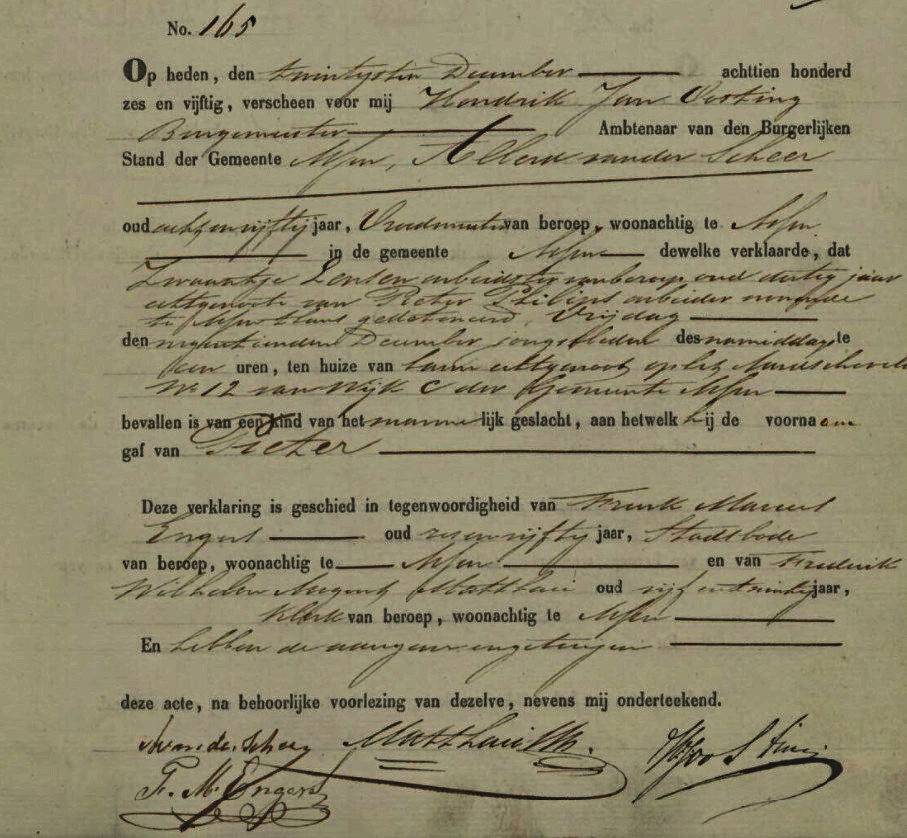 No. 165
Op heden, den twintigsten December achttien honderd
zes en vijftig, verscheen voor mij Hendrik Jan Oosting
Burgemeester Ambtenaar van den Burgerlijken
Stand der Gemeente Assen, Allerd van der Scheer
oud acht en vijftig jaar, Vroedmeester van beroep, woonachtig te Assen
in de gemeente Assen dewelke verklaarde, dat
Zwaantje Lensen arbeidster van beroep oud dertig jaar
echtgenoote van Pieter Philips arbeider
te Assen thans gedetineerd, Vrijdag
den negentienden December jongstleden des namiddags te
een uren, ten huize van haren echtgenoot op het
No 12 van Wijk C der Gemeente Assen
bevallen is van een kind van het mannelijk geslacht, aan hetwelk hij de voornaam
gaf van Pieter
Deze verklaring is geschied in tegenwoordigheid van Freerk Marcus
Engers oud zes en vijftig jaar, Stadsbode
van beroep, woonachtig te Assen en van Frederik
Wilhelm August Matthaei oud vijf en twintig jaar,
Klerk van beroep, woonachtig te Assen
En hebben de aangever en getuigen
deze acte, na behoorlijke voorlezing van dezelve, nevens mij onderteekend.
A van der Scheer Matthaei
F. M. Engers